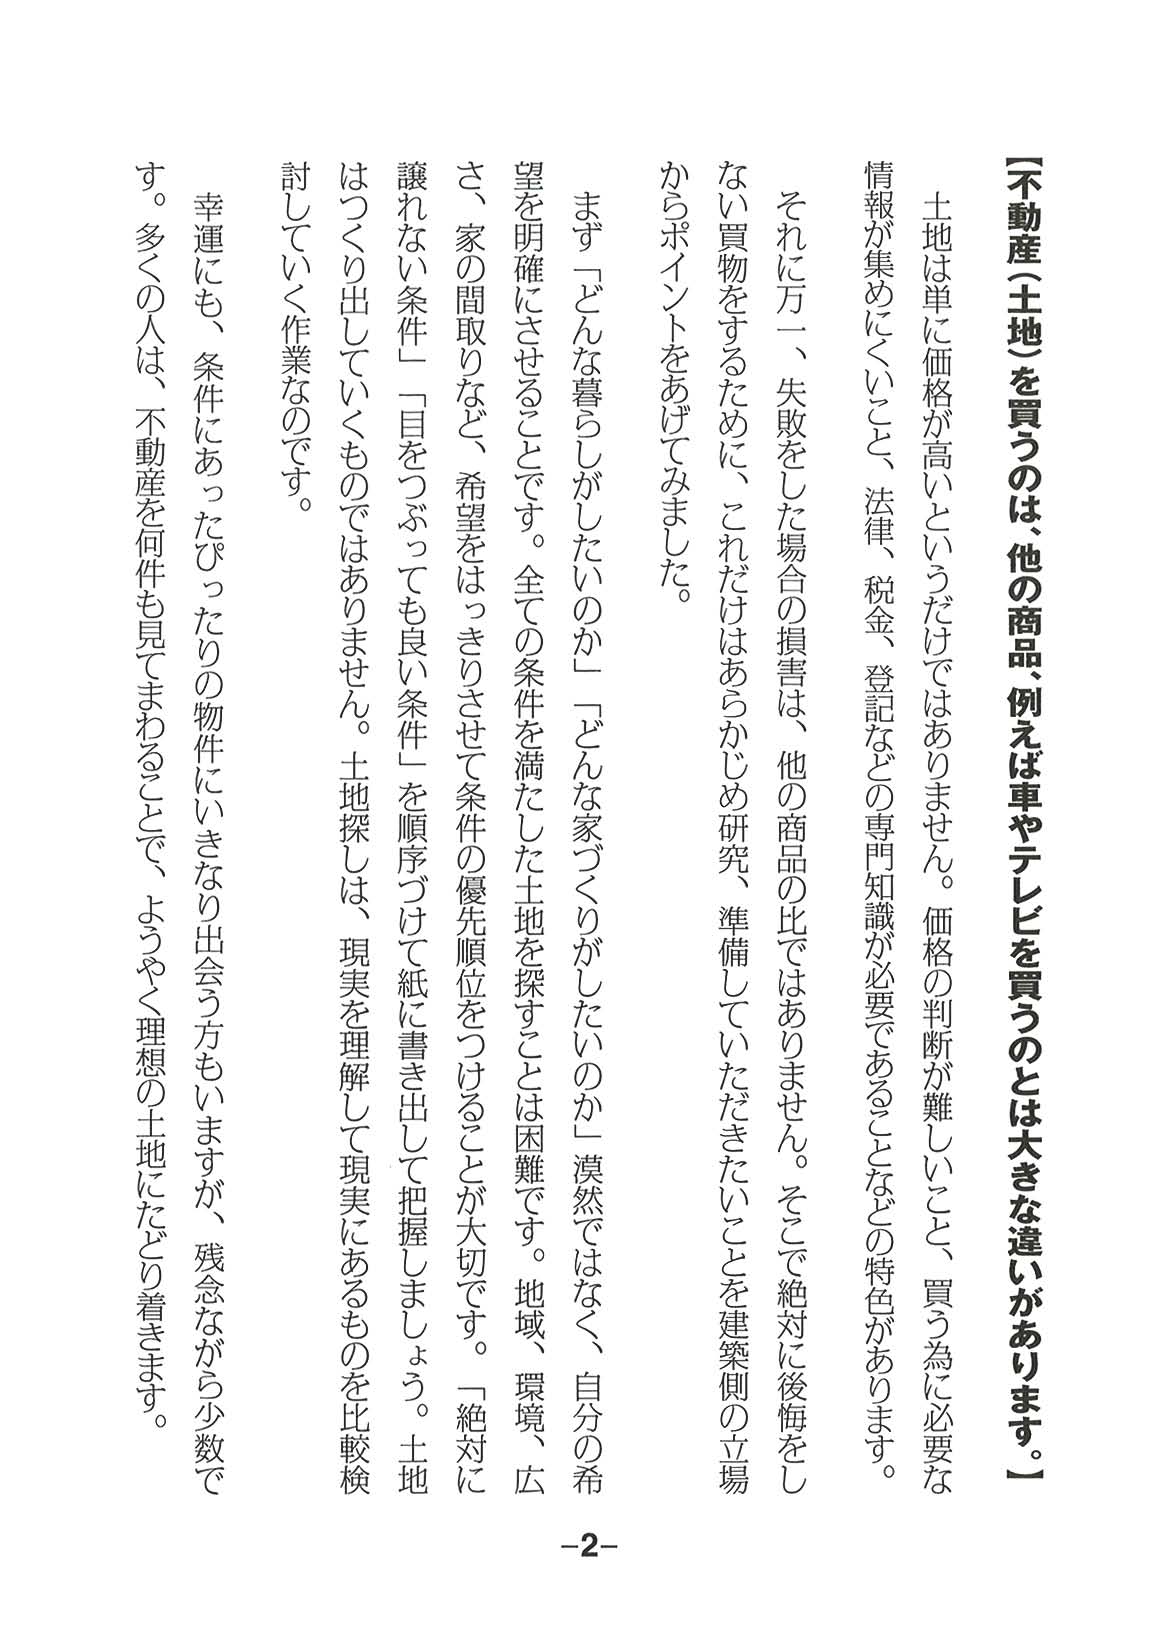 【不動産（土地）を買うのは、他の商品、例えば車やテレビを買うのとは大きな違いがあります。】
土地は単に価格が高いというだけではありません。価格の判断が難しいこと、買う為に必要な
情報が集めにくいこと、法律、税金、登記などの専門知識が必要であることなどの特色があります。
それに万一、失敗をした場合の損害は、他の商品の比ではありません。そこで絶対に後悔をし
ない買物をするために、これだけはあらかじめ研究、準備していただきたいことを建築側の立場
からポイントをあげてみました。
まず「どんな暮らしがしたいのか」「どんな家づくりがしたいのか」漠然ではなく、自分の希
望を明確にさせることです。全ての条件を満たした土地を探すことは困難です。地域、環境、広
さ、家の間取りなど、希望をはっきりさせて条件の優先順位をつけることが大切です。「絶対に
譲れない条件」「目をつぶっても良い条件」を順序づけて紙に書き出して把握しましょう。土地
はつくり出していくものではありません。土地探しは、現実を理解して現実にあるものを比較検
討していく作業なのです。
幸運にも、条件にあったぴったりの物件にいきなり出会う方もいますが、残念ながら少数で
す。多くの人は、不動産を何件も見てまわることで、ようやく理想の土地にたどり着きます。
−2−